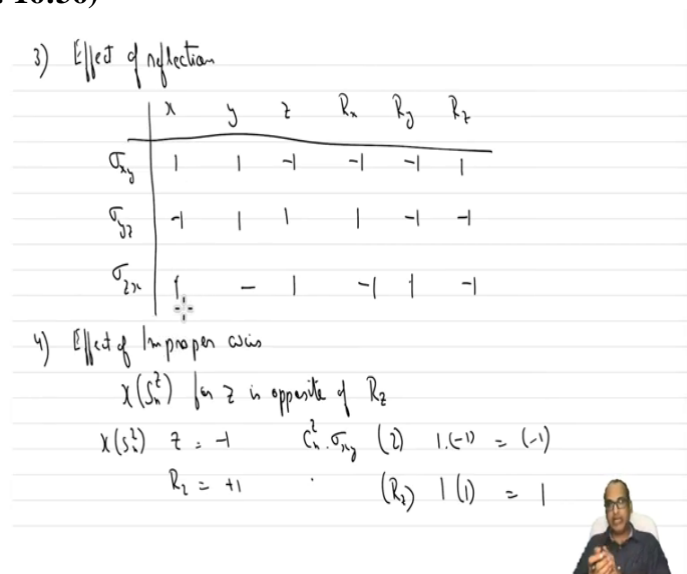 3) Effect of reflection
x y z Rx Ry Rz
σxy 1 1 -1 -1 -1 1
σyz -1 1 1 1 -1 -1
σzx 1 - 1 -1 1 -1
4) Effect of Improper axis
χ(Sₙᶻ) for z is opposite of Rz
χ(Sₙᶻ) z = -1 Cₙᶻ.σxy (z) 1.(-1) = (-1)
Rz = +1 (Rz) 1(1) = 1